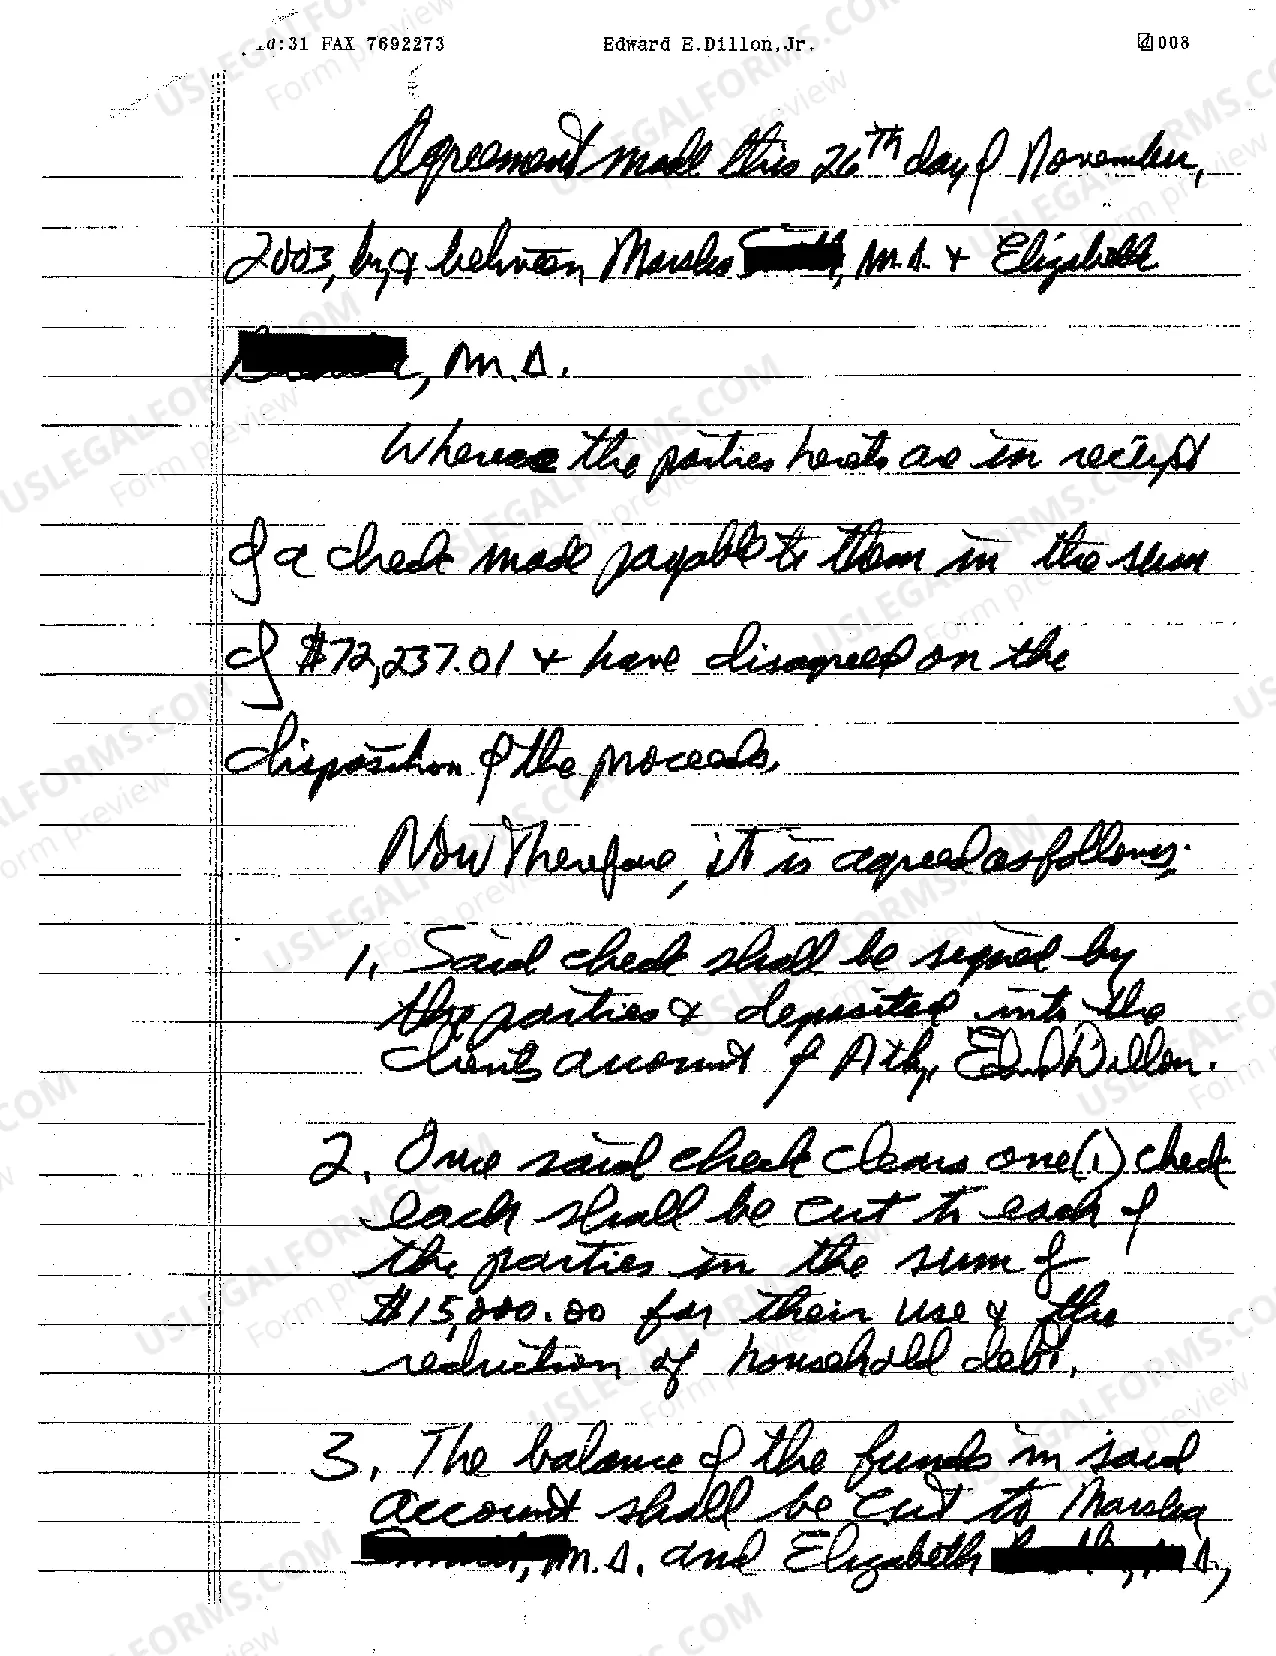 10:31 FAX 7692273 Edward E.Dillon,Jr. 008
Agreement made this 26th day of November,
2003, by & between Marsha M.D. & Elizabeth
, M.D.
Whereas the parties hereto are in receipt
of a check made payable to them in the sum
of $72,237.01 & have disagreed on the
disposition of the proceeds.
Now Therefore, it is agreed as follows:
1. Said check shall be signed by
the parties & deposited into the
clients account of Atty. Edward Dillon.
2. Once said check clears one (1) check
each shall be cut to each of
the parties in the sum of
$15,000.00 for their use & the
reduction of household debt.
3. The balance of the funds in said
account shall be cut to Marsha
, M.D. and Elizabeth , M.D.,
USLEGALFORMS.COM
Form preview